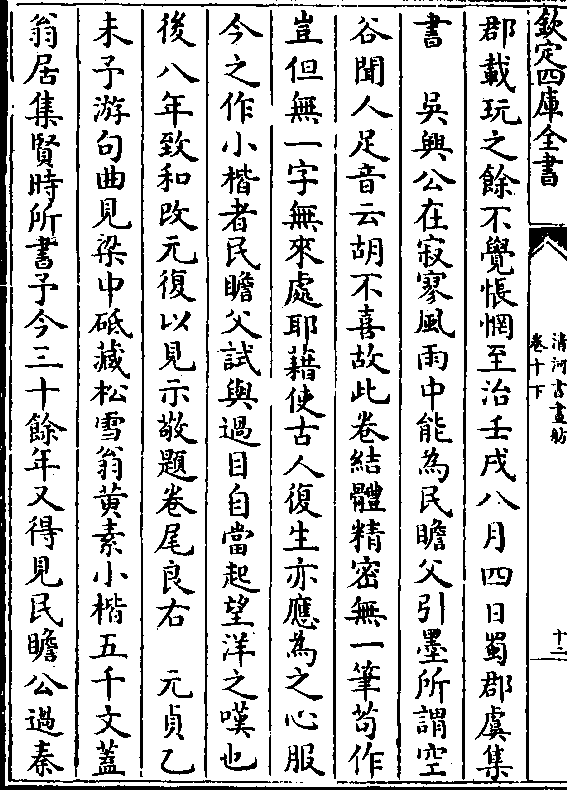 欽定四庫全書
清河書畫舫
卷十下
十二
郡載玩之餘不覺悵惘至治壬戌八月四日蜀郡虞集
書　吳興公在寂寥風雨中能為民瞻父引墨所謂空
谷聞人足音云胡不喜故此卷結體精密無一筆茍作
豈但無一字無來處耶藉使古人復生亦應為之心服
今之作小楷者民瞻父試與過目自當起望洋之嘆也
後八年致和改元復以見示敬題卷尾良右　元貞乙
未予游句曲見梁中砥藏松雪翁黄素小楷五千文蓋
翁居集賢時所書予今三十餘年又得見民瞻公過秦